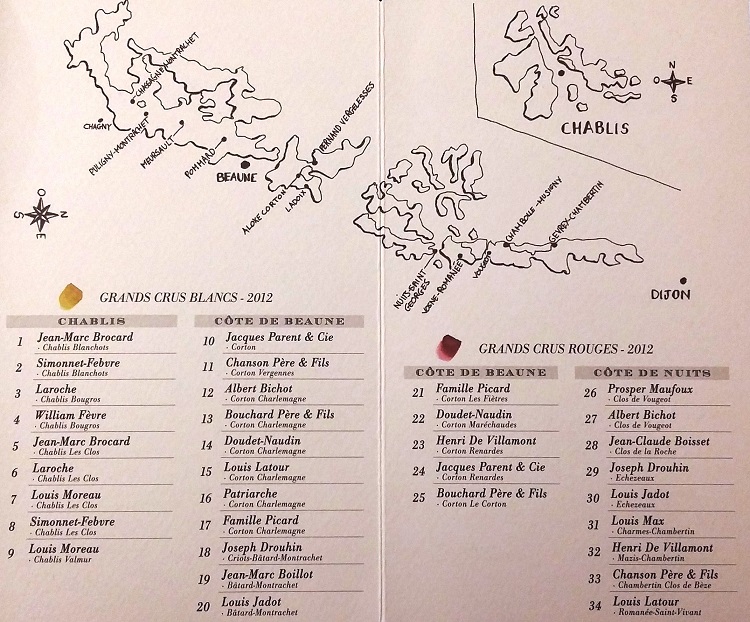 CHASSAGNE-MONTRACHET
CHAGNY
PULIGNY-MONTRACHET
MEURSAULT
POMMARD
BEAUNE
ALOXE CORTON
LADOIX
PERNAND VERGELESSES
O
N
S
E
CHABLIS
N
O
E
S
NUITS-SAINT
GEORGES
VOSNE-ROMANÉE
VOUGEOT
CHAMBOLLE-MUSIGNY
GEVREY-CHAMBERTIN
DIJON
GRANDS CRUS BLANCS - 2012
CHABLIS
1 Jean-Marc Brocard
- Chablis Blanchots
2 Simonnet-Febvre
- Chablis Blanchots
3 Laroche
- Chablis Bougros
4 William Fèvre
- Chablis Bougros
5 Jean-Marc Brocard
- Chablis Les Clos
6 Laroche
- Chablis Les Clos
7 Louis Moreau
- Chablis Les Clos
8 Simonnet-Febvre
- Chablis Les Clos
9 Louis Moreau
- Chablis Valmur
CÔTE DE BEAUNE
10 Jacques Parent & Cie
- Corton
11 Chanson Père & Fils
- Corton Vergennes
12 Albert Bichot
- Corton Charlemagne
13 Bouchard Père & Fils
- Corton Charlemagne
14 Doudet-Naudin
- Corton Charlemagne
15 Louis Latour
- Corton Charlemagne
16 Patriarche
- Corton Charlemagne
17 Famille Picard
- Corton Charlemagne
18 Joseph Drouhin
- Criots-Bâtard-Montrachet
19 Jean-Marc Boillot
- Bâtard-Montrachet
20 Louis Jadot
- Bâtard-Montrachet
GRANDS CRUS ROUGES - 2012
CÔTE DE BEAUNE
21 Famille Picard
- Corton Les Fiètres
22 Doudet-Naudin
- Corton Maréchaudes
23 Henri De Villamont
- Corton Renardes
24 Jacques Parent & Cie
- Corton Renardes
25 Bouchard Père & Fils
- Corton Le Corton
CÔTE DE NUITS
26 Prosper Maufoux
- Clos de Vougeot
27 Albert Bichot
- Clos de Vougeot
28 Jean-Claude Boisset
- Clos de la Roche
29 Joseph Drouhin
- Echezeaux
30 Louis Jadot
- Echezeaux
31 Louis Max
- Charmes-Chambertin
32 Henri De Villamont
- Mazis-Chambertin
33 Chanson Père & Fils
- Chambertin Clos de Bèze
34 Louis Latour
- Romanée-Saint-Vivant